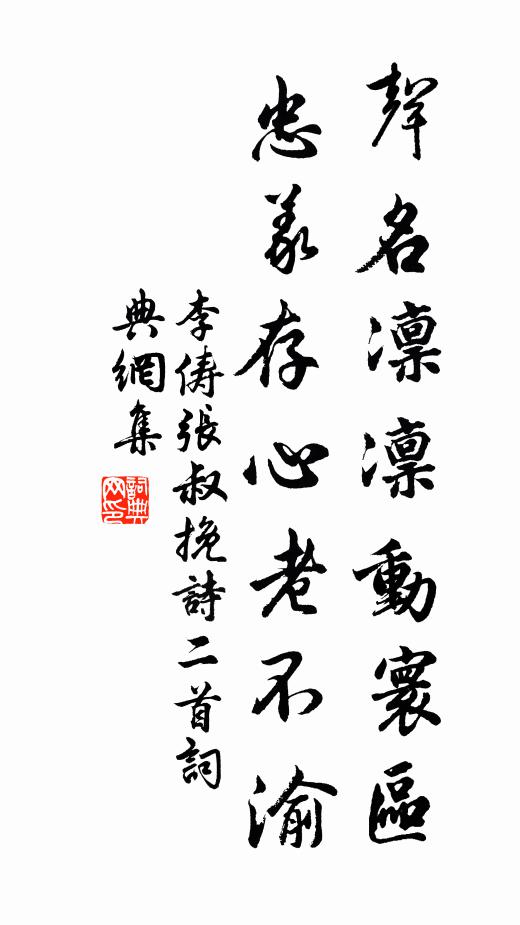 聲名凛凛動寰區
忠義存心老不渝
李俦張叔挽詩二首詞
典網集
詞典網印